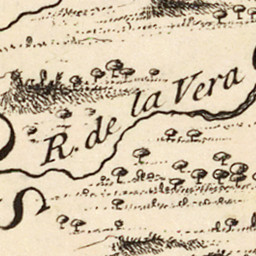 R. de la Vera
S